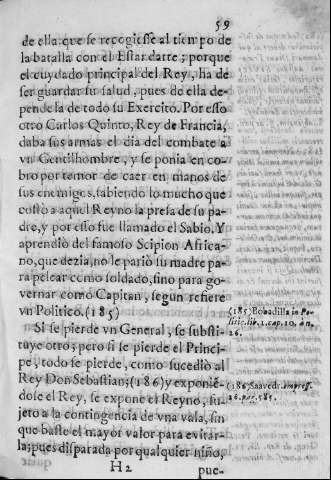 59
de ella: que se recogiesse al tiempo de
la batalla con el Estandarte; porque
el cuydado principal del Rey, ha de
ser guardar su salud, pues de ella de-
pende la de todo su Exercito. Por esso
otro Carlos Quinto, Rey de Francia,
daba sus armas el dia del combate a
vn Gentilhombre, y se ponia en co-
bro por temor de caer en manos de
sus enemigos, sabiendo lo mucho que
costò a aquel Reyno la presa de su pa-
dre, y por esso fue llamado el Sabio. Y
aprendiò del famoso Scipion Africa-
no, que dezia, no le pariò su madre pa-
ra pelear como soldado, sino para go-
vernar como Capitan, segun refiere
vn Politico. (185)
(185) Bobadilla in Po-
litic. lib. 1. cap. 10. n.
26.
Si se pierde vn General, se substi-
tuye otro; pero si se pierde el Princi-
pe, todo se pierde, como sucediò al
Rey Don Sebastian; (186) y exponiè-
(186) Saaved. empres.
26. pag. 585.
dose el Rey, se expone el Reyno, su-
jeto a la contingencia de vna vala, sin
que baste el mayor valor para evitar-
la; pues disparada por qualquier niño,
H2 pue-